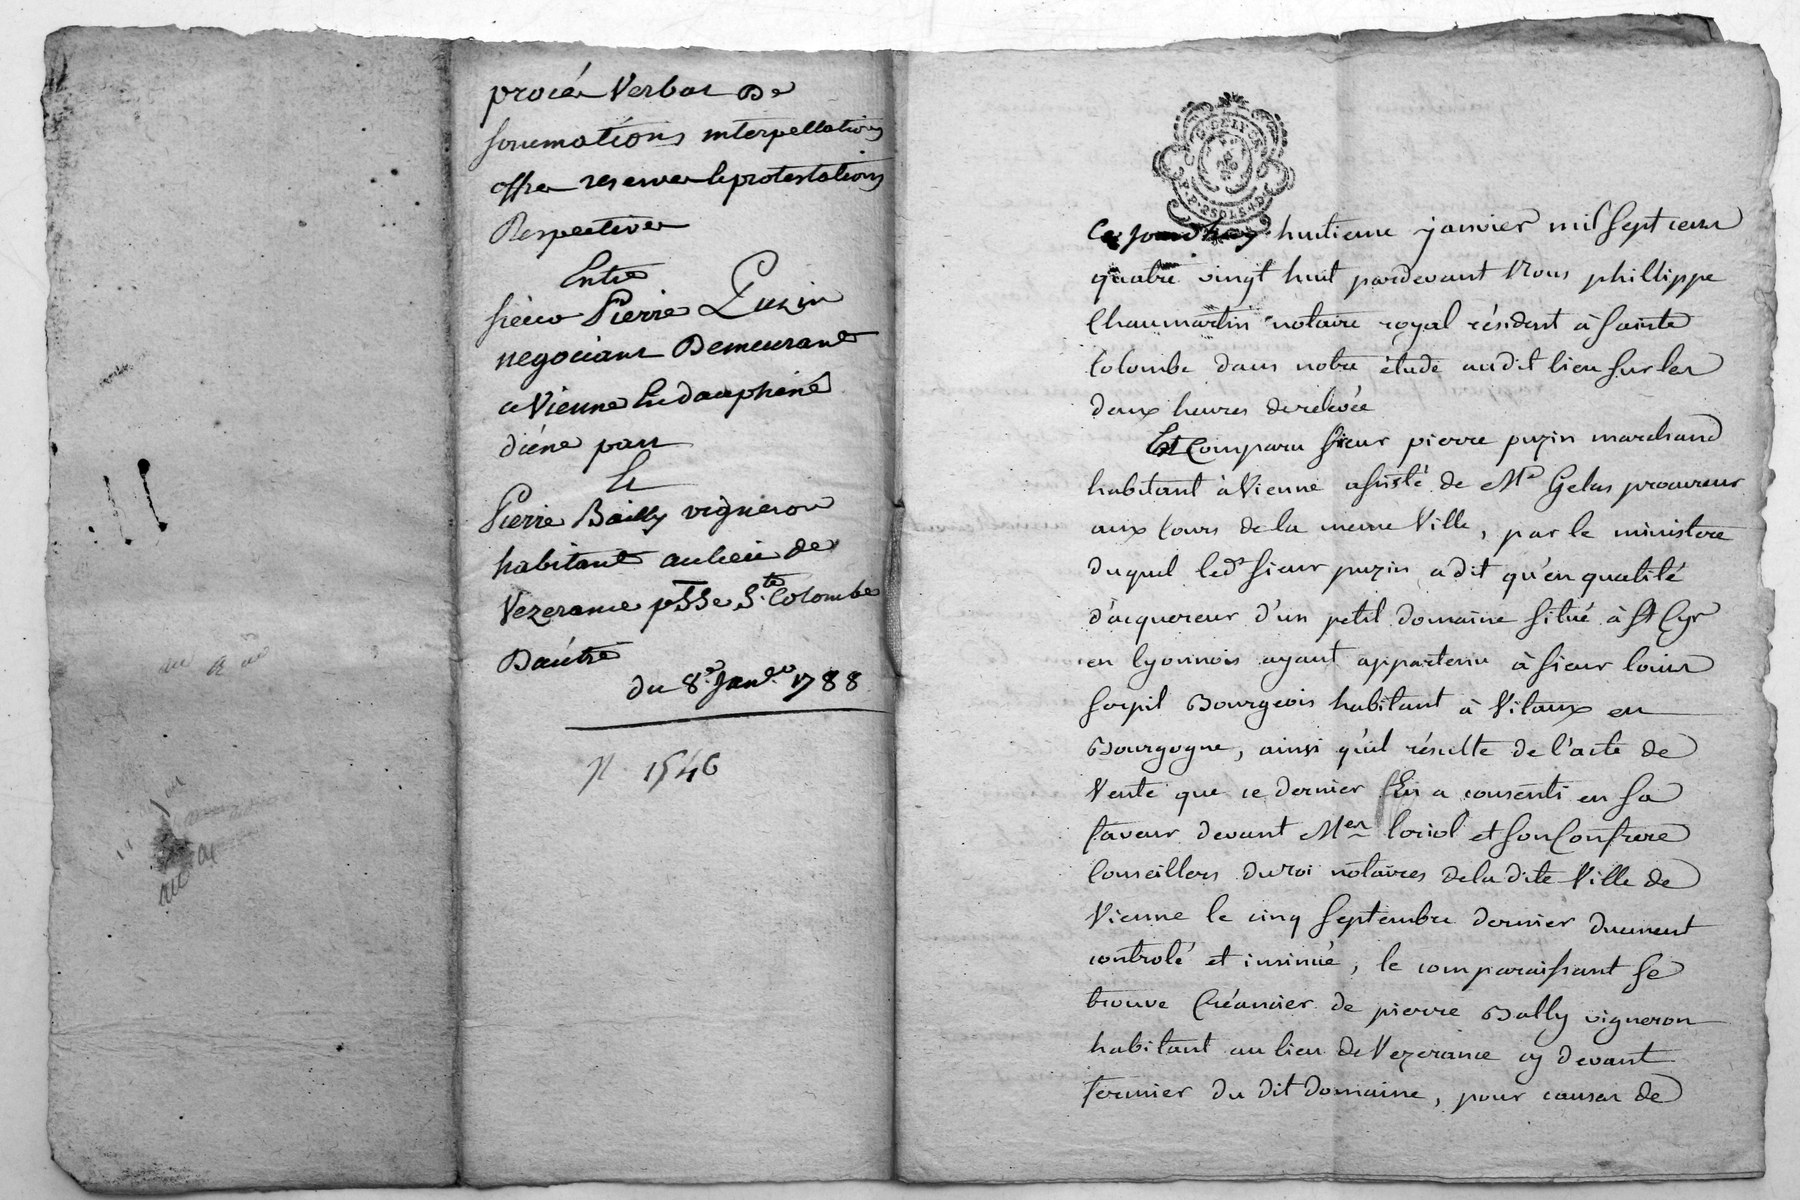 procés Verbal De
sommations interpellations
offres reserves & protestations
Respectives
Entre
sieur Pierre Puzin
negociant Demeurant
a Vienne En dauphiné
d'une part
Et
Pierre Bailly vigneron
habitant au lieu de
Vezerance psse Ste Colombe
D'autre
du 8e Janer 1788
N 1546
G. DE LYON
2. SOLS 4. D.
Cejourdhuy huitieme janvier mil sept cens
quatre vingt huit pardevant Nous phillippe
Chaumartin notaire royal résident à Sainte
Colombe dans notre étude audit lieu sur les
deux heures de relevée
Est Comparu Sieur pierre puzin marchand
habitant à Vienne assisté de Me Gelas procureur
aux Cours de la meme Ville, par le ministere
duquel ledt sieur puzin a dit qu'en qualité
d'acquereur d'un petit domaine situé à St Cyr
en lyonnois ayant appartenu à sieur louis
Bourgeois habitant à Vilaux en
Bourgogne, ainsi qu'il résulte de l'acte de
Vente que ce dernier lui a consenti en sa
faveur devant Mes loriol et son Confrere
Conseillers du roi notaires de la dite Ville de
Vienne le cinq Septembre dernier duement
controlé et insinué, le comparaissant se
trouve Créancier de pierre Bally vigneron
habitant au lieu de Vezerance cy devant
fermier du dit Domaine, pour causes de